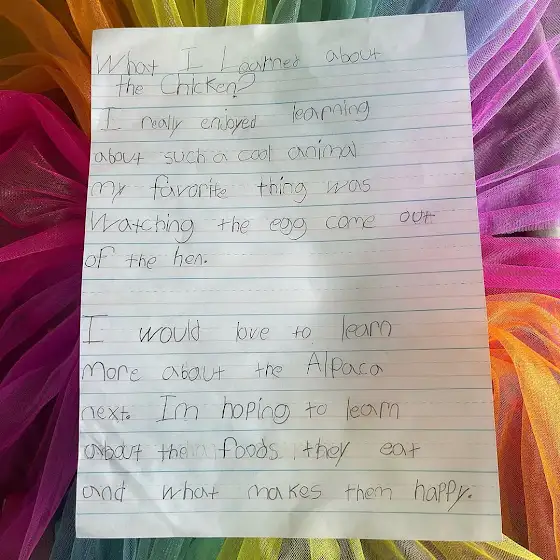 What I Learned about
the Chicken?
I really enjoyed learning
about such a cool animal
my favorite thing was
Watching the egg come out
of the hen.
I would love to learn
More about the Alpaca
next. Im hoping to learn
about the foods they eat
and what makes them happy.